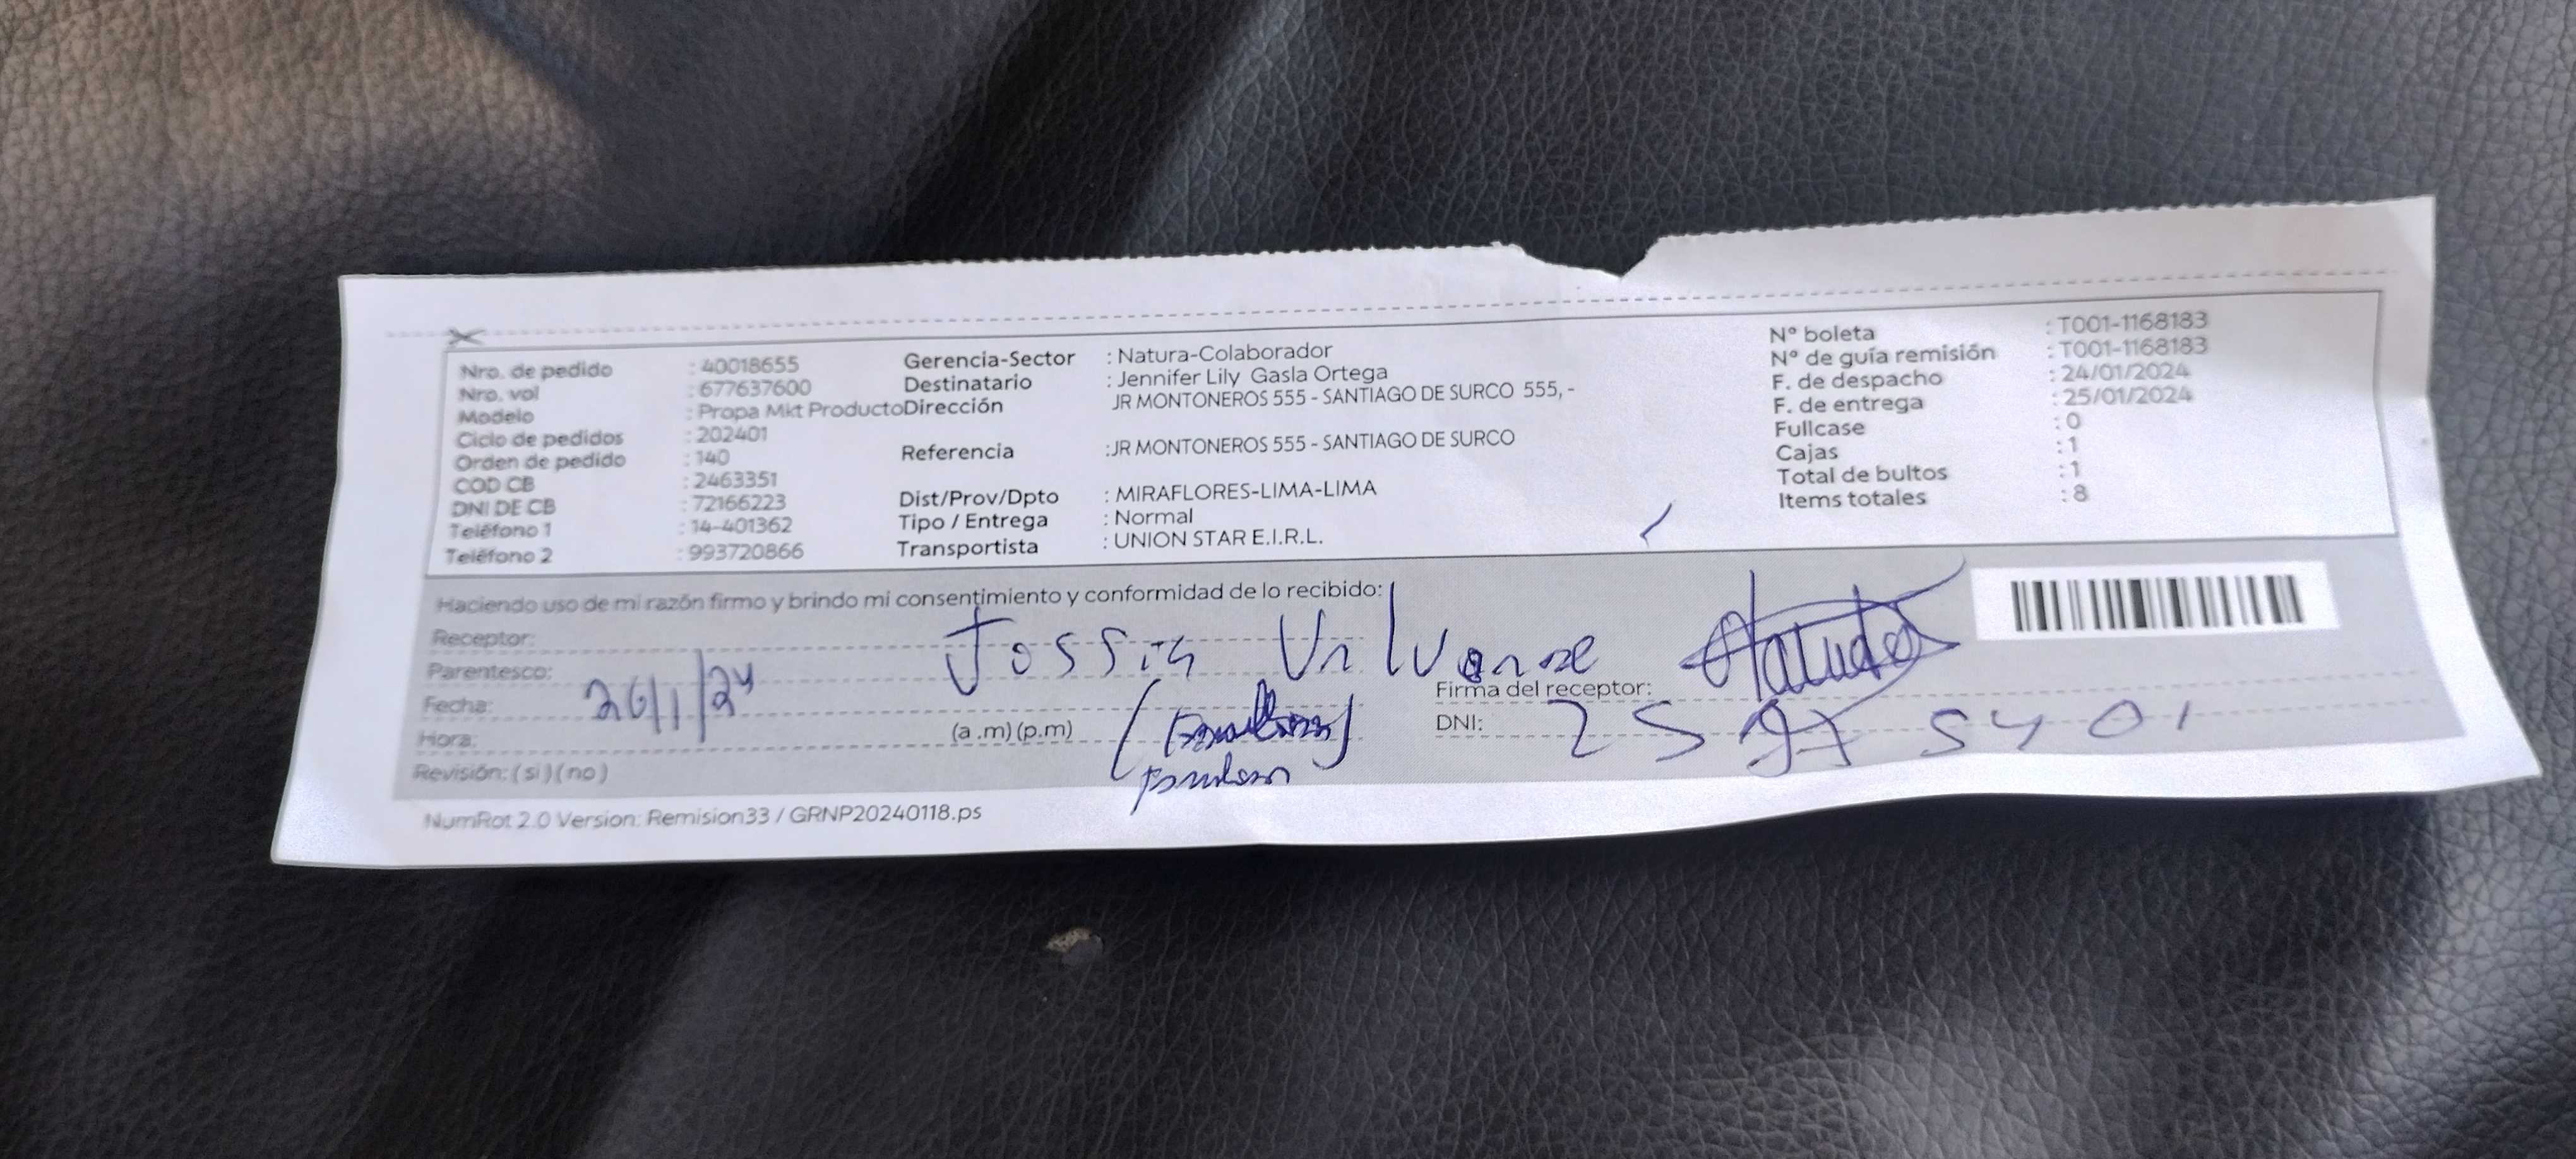 Nro. de pedido : 40018655
Nro. vol : 677637600
Modelo : Propa Mkt Producto
Ciclo de pedidos : 202401
Orden de pedido : 140
COD CB : 2463351
DNI DE CB : 72166223
Teléfono 1 : 14-401362
Teléfono 2 : 993720866
Gerencia-Sector : Natura-Colaborador
Destinatario : Jennifer Lily Gasla Ortega
Dirección JR MONTONEROS 555 - SANTIAGO DE SURCO 555, -
Referencia :JR MONTONEROS 555 - SANTIAGO DE SURCO
Dist/Prov/Dpto : MIRAFLORES-LIMA-LIMA
Tipo / Entrega : Normal
Transportista : UNION STAR E.I.R.L.
Nº boleta : T001-1168183
Nº de guía remisión : T001-1168183
F. de despacho : 24/01/2024
F. de entrega : 25/01/2024
Fullcase : 0
Cajas : 1
Total de bultos : 1
Items totales : 8
Haciendo uso de mi razón firmo y brindo mi consentimiento y conformidad de lo recibido:
Receptor:
Parentesco:
Fecha: 26/1/24
Hora: (a.m) (p.m)
Revisión: ( si ) ( no )
Firma del receptor:
DNI: 25975401
NumRot 2.0 Version: Remision33 / GRNP20240118.ps